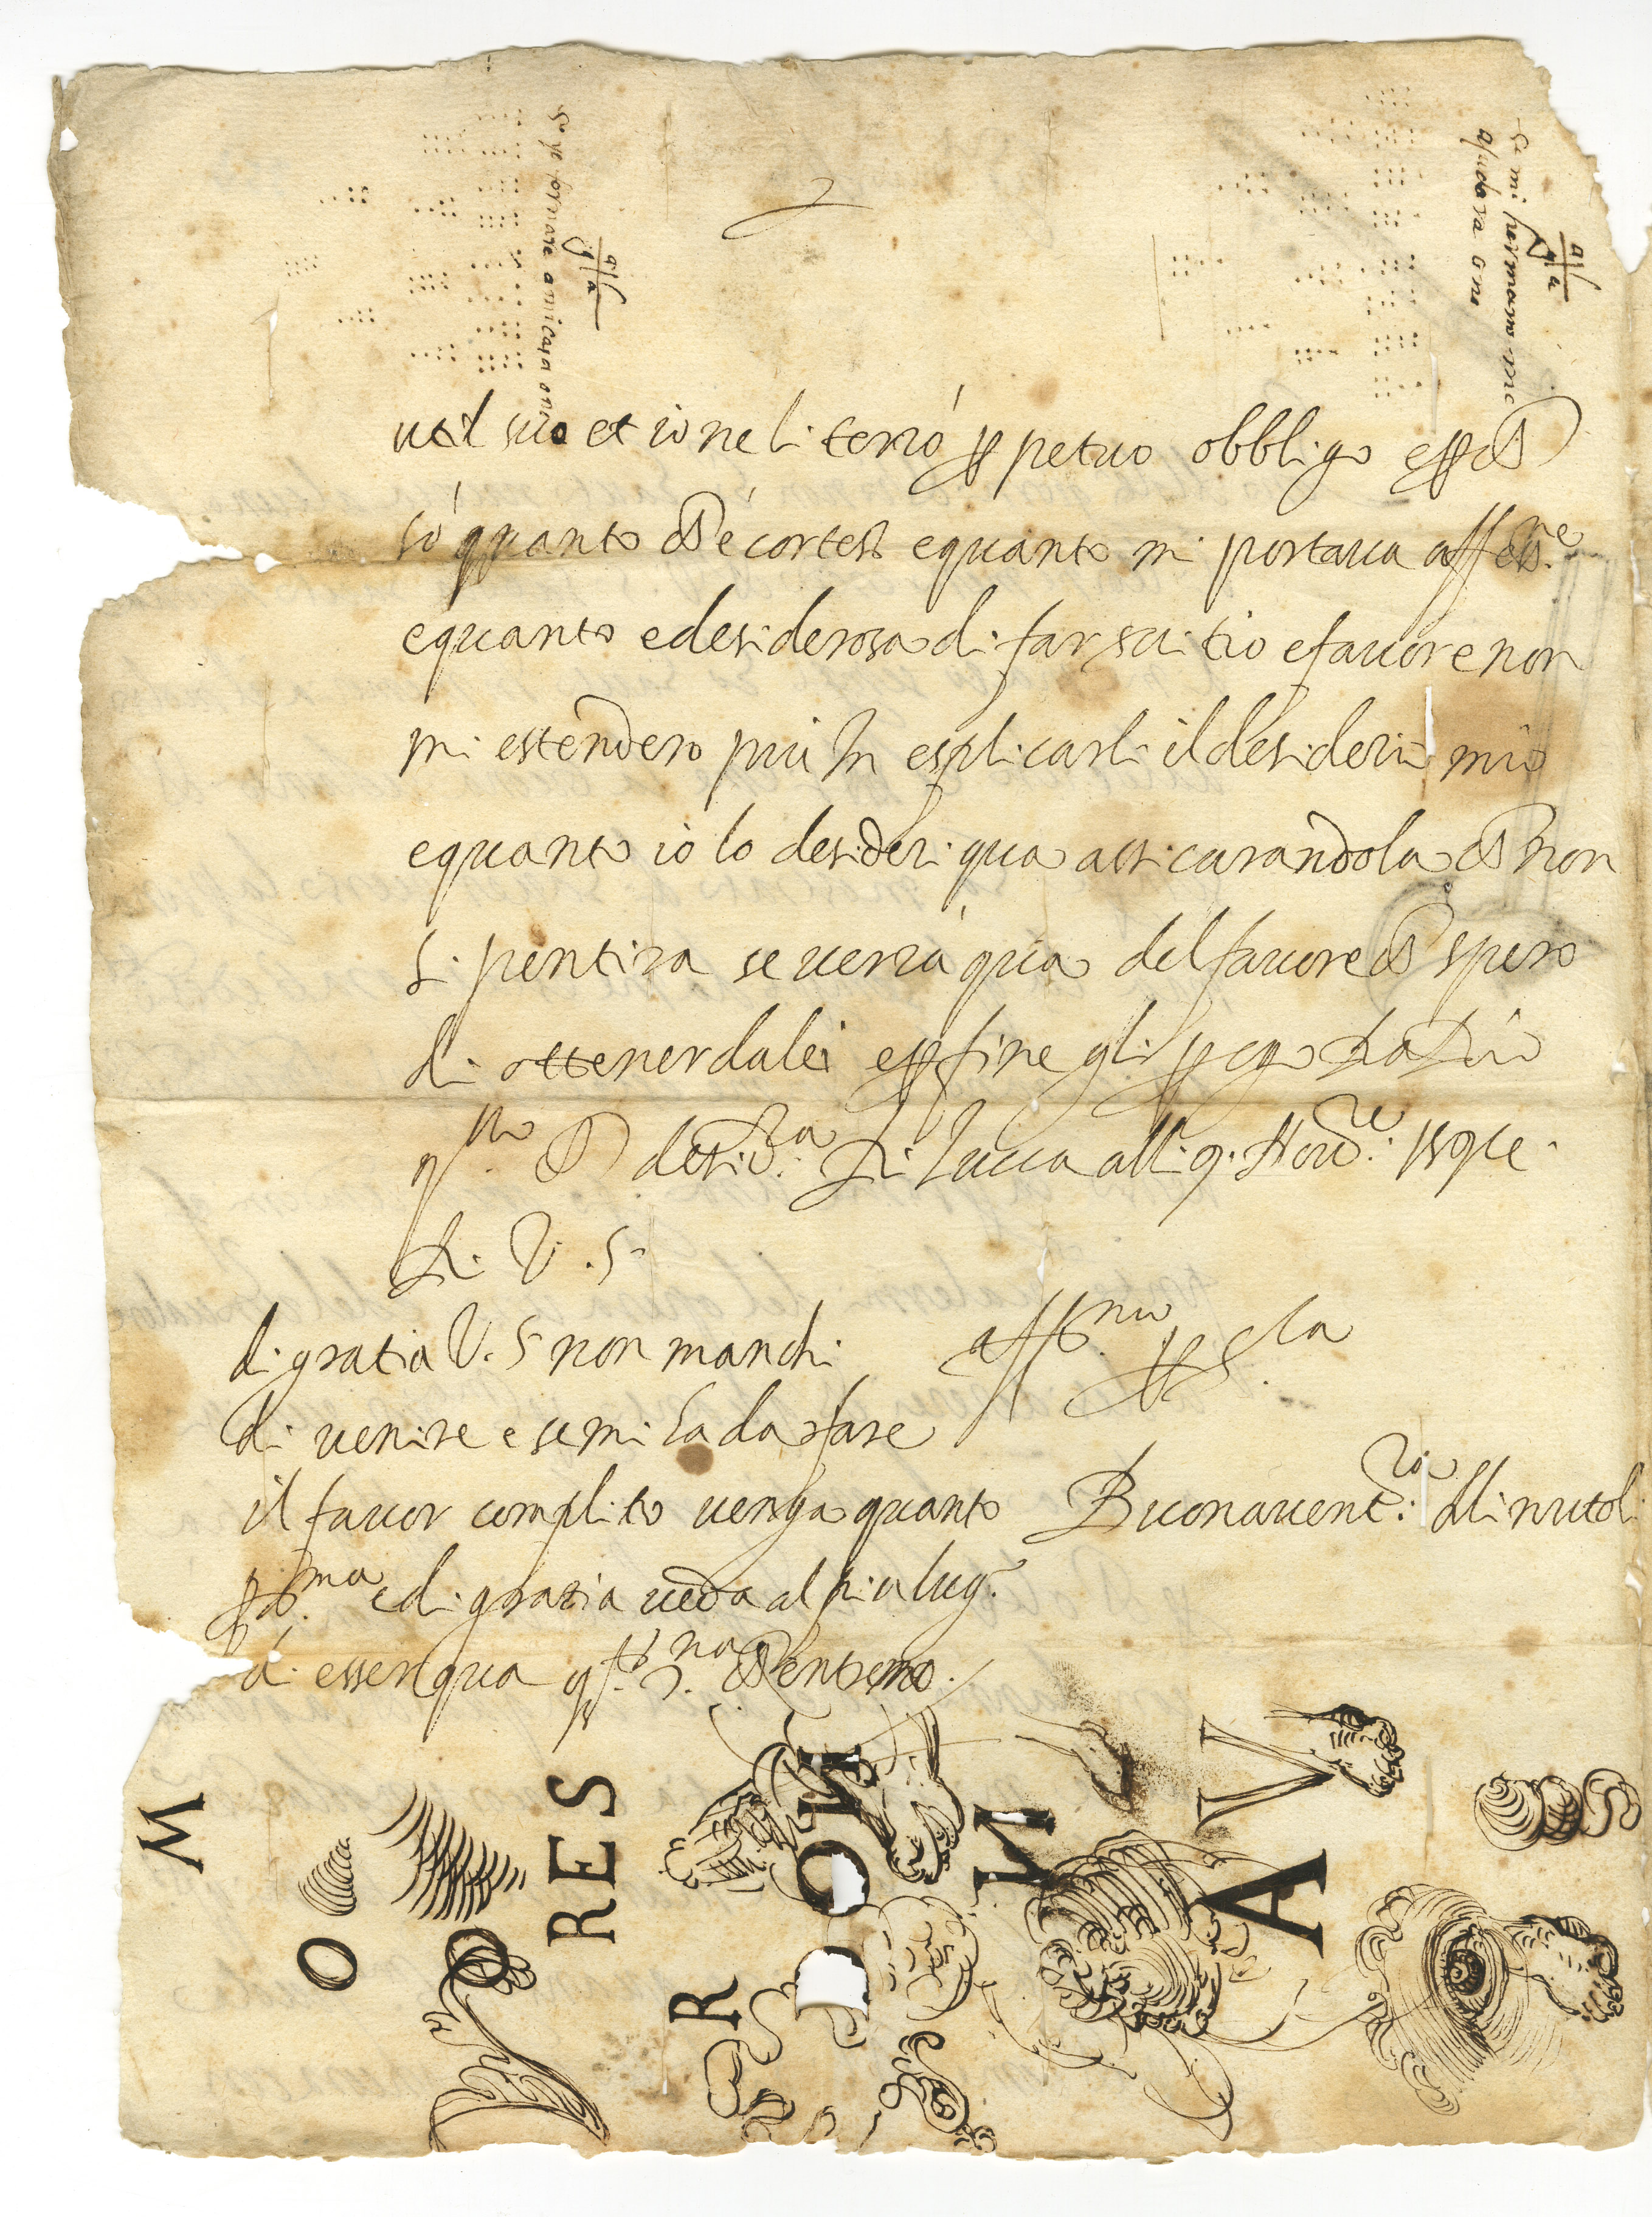 se mi
se ve tornare a mi casa
nel suo et io ne li terrò perpetuo obbligo e perche
so quanto che è cortese e quanto mi portava aff.ne
e quanto e desiderosa di far servitio e favore non
mi estendero più In esplicarli il desiderio mio
e quanto io lo desideri qua assicurandola che non
si pentira se verrà qua del favore che spero
di ottener da lei e per fine gli prego da Dio
q.to che desid.ra Di Lucca alli 9. Nov.re
Di V. S.
di gratia V. S. non manchi
di venire e se mi ha da fare
il favor complito venga quanto
p.ma e di gratia veda al più lug.
di esser qua che entremo.
aff.mo
Buonavent.ra Minutoli
M
O
O
RES
R
O
N
N
V
A